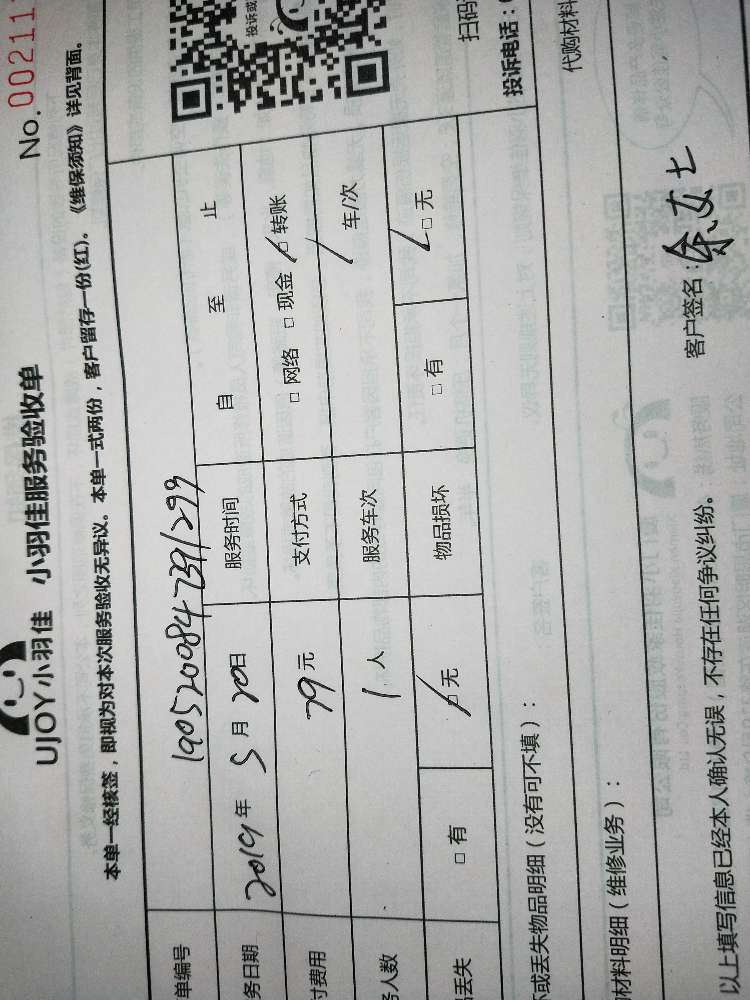 No.00211
UJOY小羽佳 小羽佳服务验收单
本单一经核签，即视为对本次服务验收无异议。本单一式两份，客户留存一份(红)。《维保须知》详见背面。
单编号 1905200847391299
务日期 2019年 5月 20日 服务时间 自 至 止
付费用 29元 支付方式 □网络 □现金 □转账
人数 1人 服务车次 / 车/次
丢失 □有 □无 物品损坏 □有 □无
投诉或
扫码
投诉电话：
或丢失物品明细（没有可不填）：
代购材料
材料明细（维修业务）：
以上填写信息已经本人确认无误，不存在任何争议纠纷。 客户签名：余女士